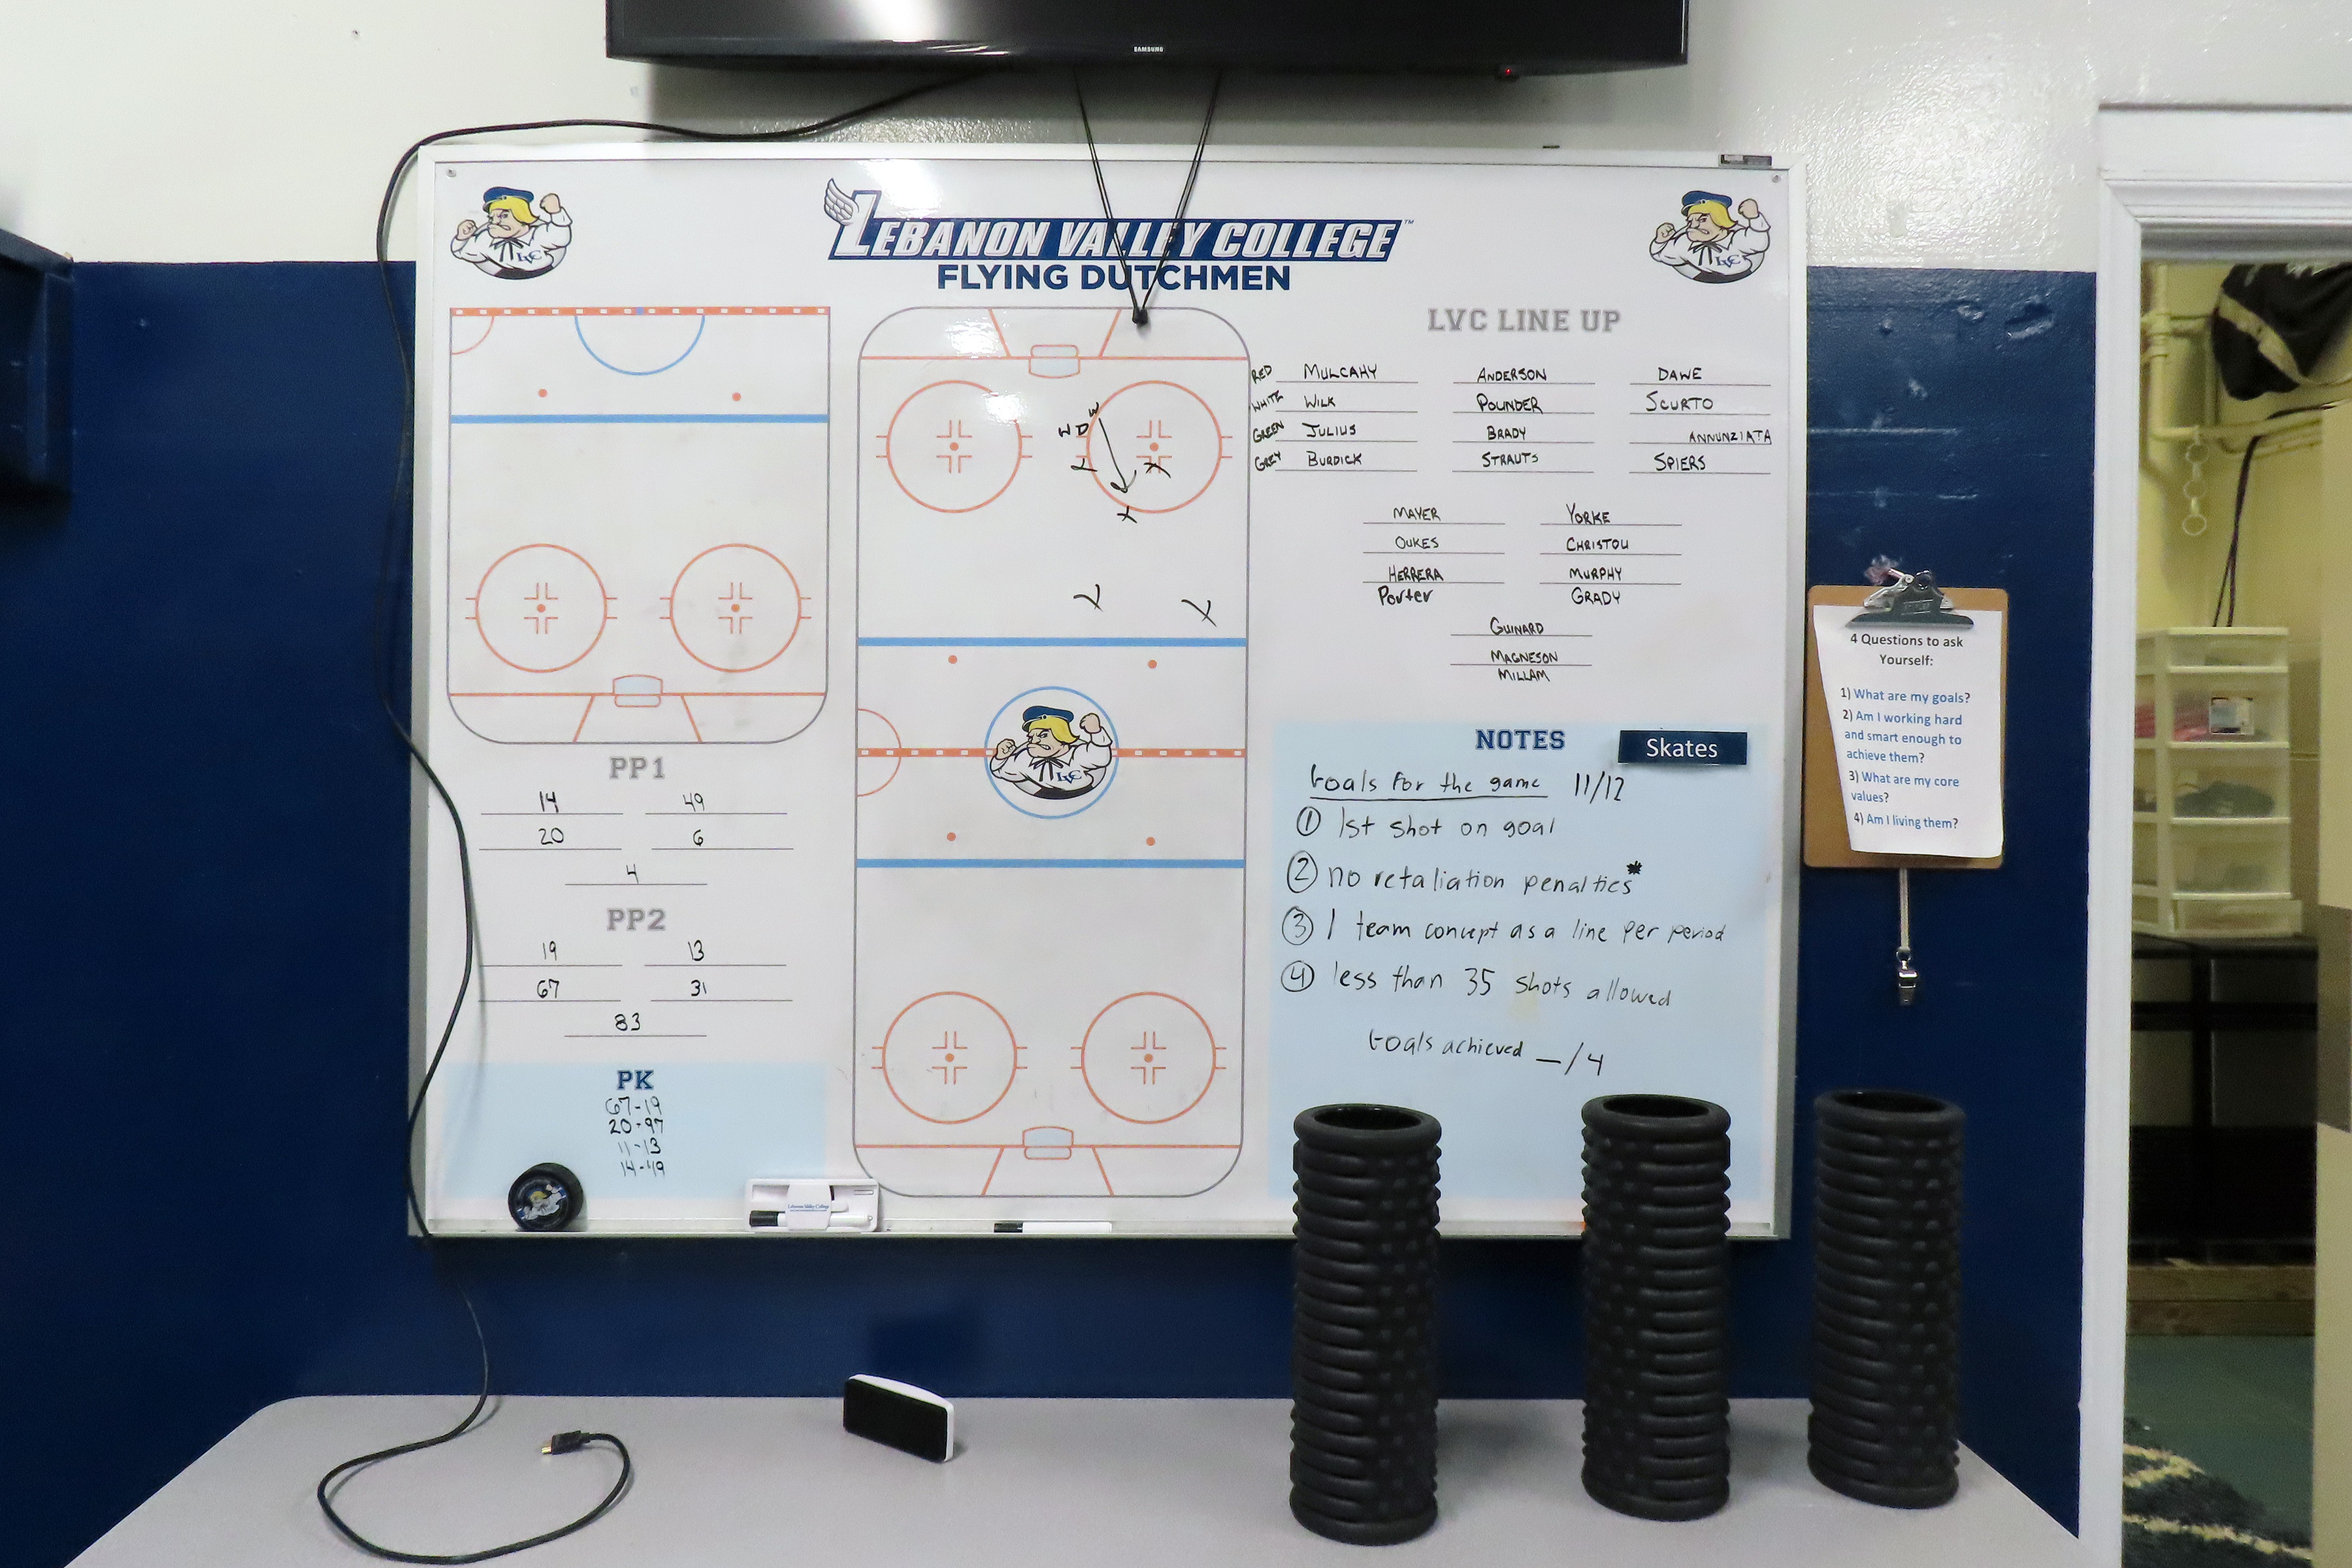 SAMSUNG
LEBANON VALLEY COLLEGE™
FLYING DUTCHMEN
LVC
LVC
LVC LINE UP
RED MULCAHY ANDERSON DAWE
WHITE WILK POUNDER SCURTO
GREEN JULIUS BRADY ANNUNZIATA
GREY BURDICK STRAUTS SPIERS
MAYER YORKE
OUKES CHRISTOU
HERRERA MURPHY
Porter GRADY
GUINARD
MAGNESON
MILLAM
W
W D
X
X
X
X
X
LVC
PP1
14 49
20 6
4
PP2
19 13
67 31
83
PK
67-19
20-97
11-13
14-49
NOTES
Skates
Goals for the game 11/12
① 1st shot on goal
② no retaliation penalties*
③ 1 team concept as a line per period
④ less than 35 shots allowed
Goals achieved _/4
Lebanon Valley College
4 Questions to ask
Yourself:
1) What are my goals?
2) Am I working hard
and smart enough to
achieve them?
3) What are my core
values?
4) Am I living them?